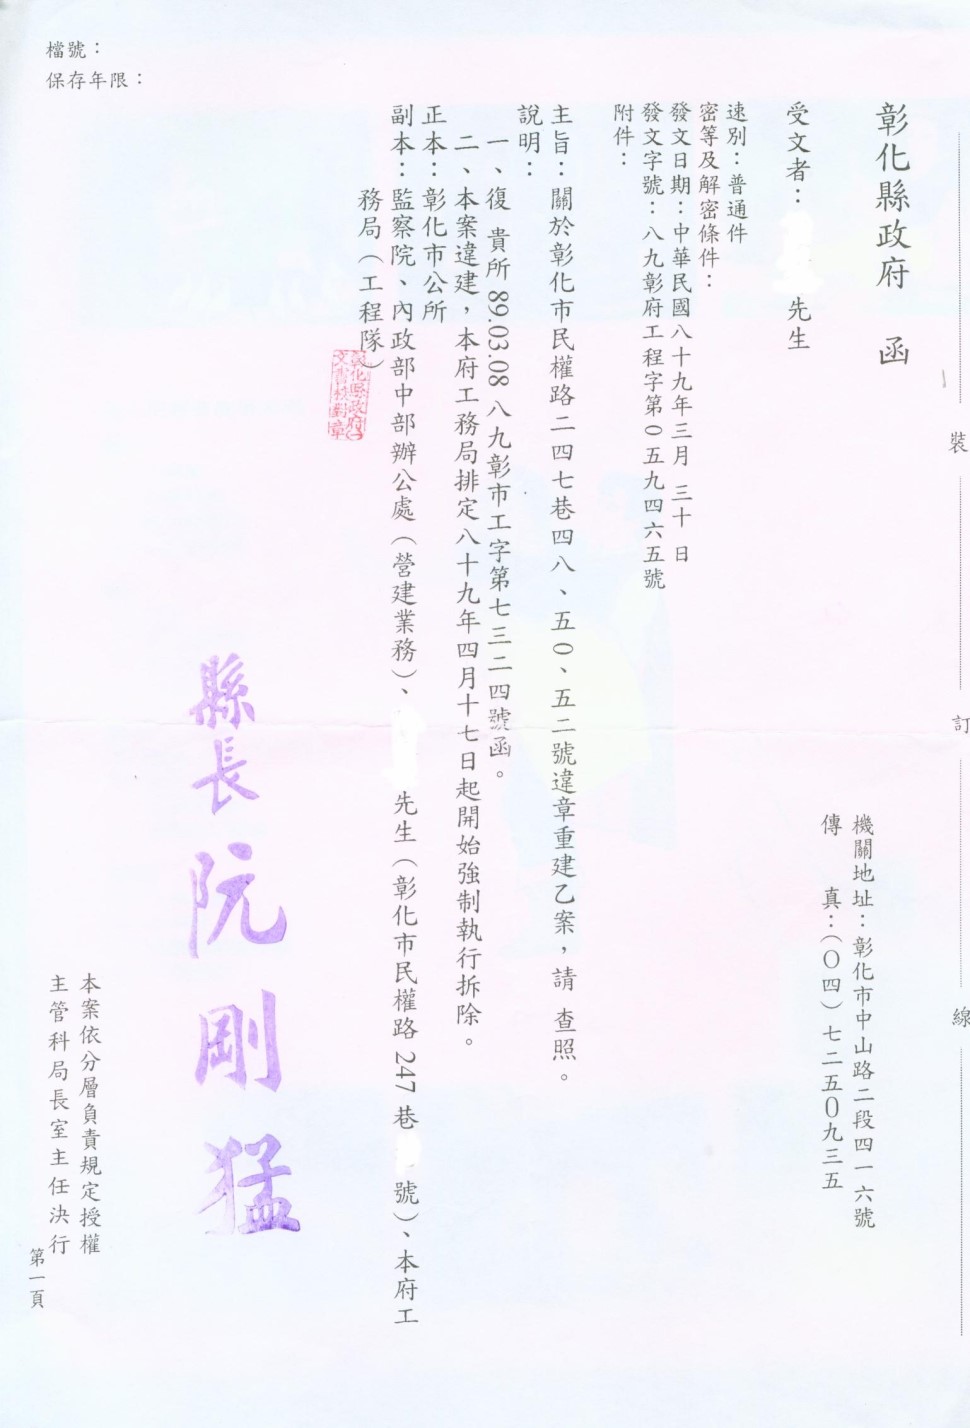 檔號：
保存年限：
裝
訂
線
彰化縣政府　函
機關地址：彰化市中山路二段四一六號
傳　　真：（０四）七二五０九三五
受文者：　　先生
速別：普通件
密等及解密條件：
發文日期：中華民國八十九年三月 三十 日
發文字號：八九彰府工程字第０五九四六五號
附件：
主旨：關於彰化市民權路二四七巷四八、五０、五二號違章重建乙案，請 查照。
說明：
一、復 貴所 89.03.08 八九彰市工字第七三二四號函。
二、本案違建，本府工務局排定八十九年四月十七日起開始強制執行拆除。
正本：彰化市公所
副本：監察院、內政部中部辦公處（營建業務）、　　先生（彰化市民權路 247 巷　號）、本府工
務局（工程隊）
彰化縣政府㈠
文書校對章
縣長 阮剛猛
本案依分層負責規定授權
主管科局長室主任決行
第一頁